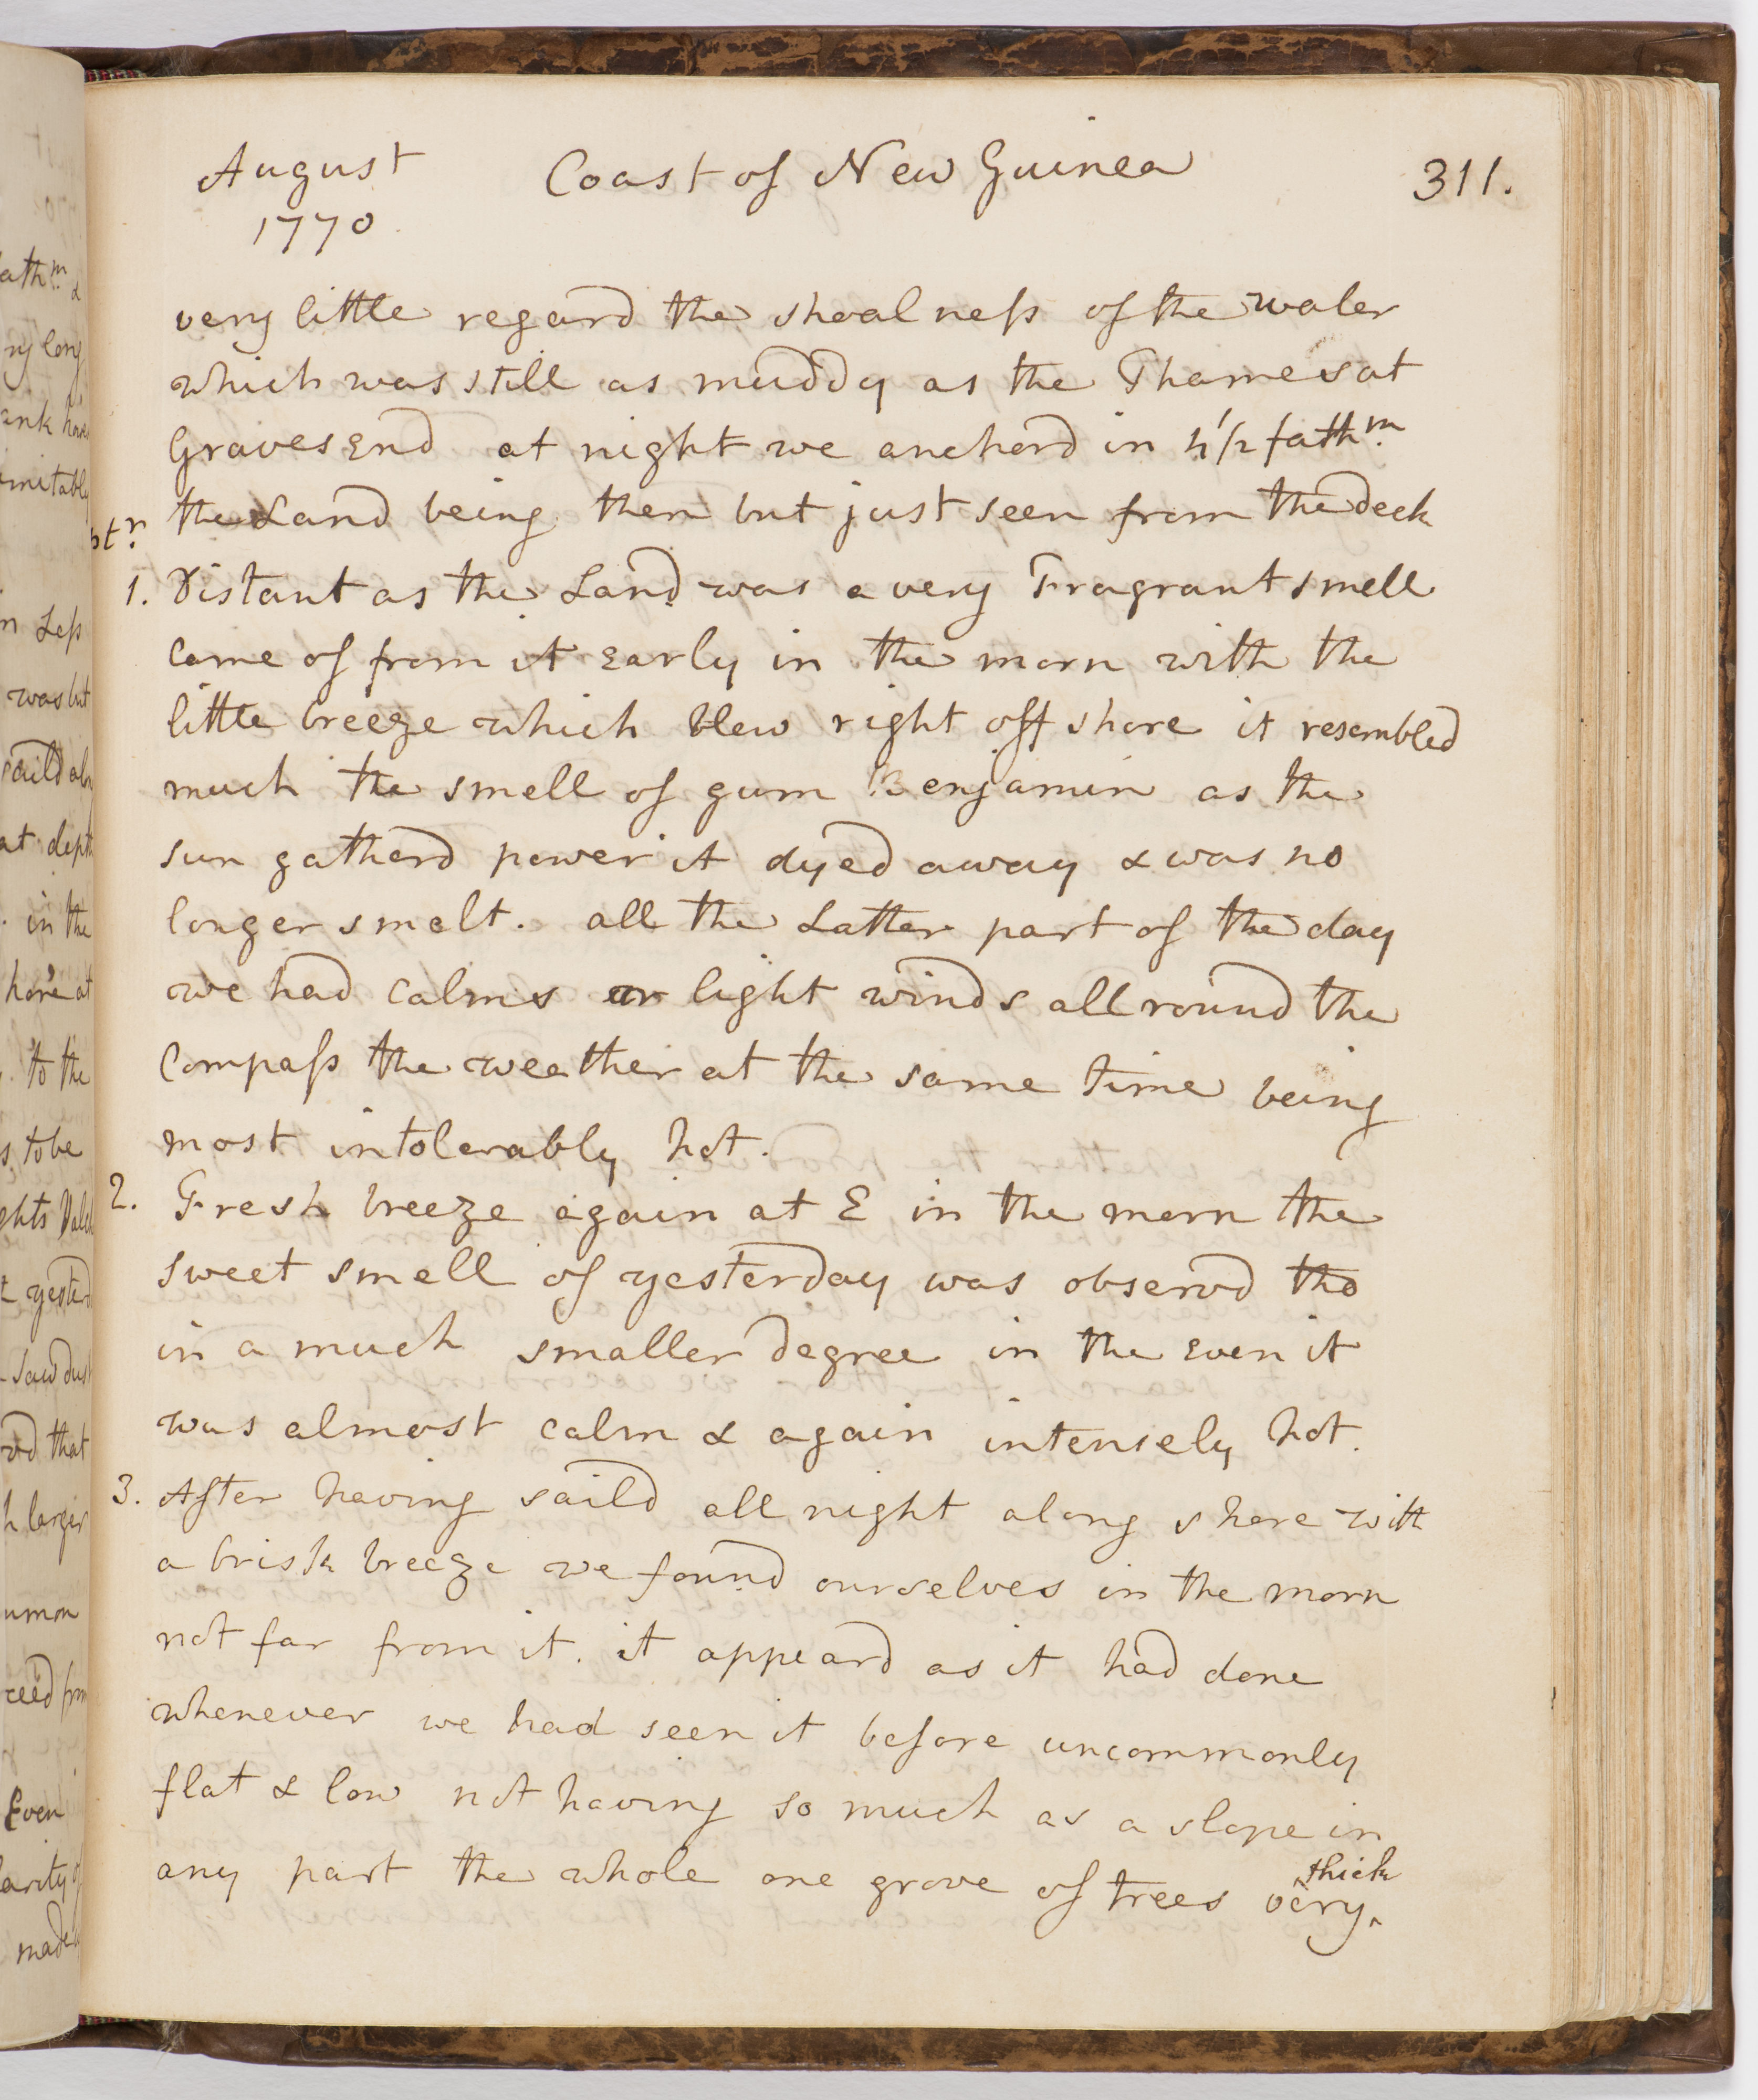 August Coast of New Guinea 311.
1770
very little regard the shoalness of the water
which was still as muddy as the Thames at
Gravesend at night we anchord in 4 1/2 fathm.
the Land being then but just seen from the deck
1. Distant as the Land was a very Fragrant smell
came of from it Early in the morn with the
little breeze which blew right off shore it resembled
much the smell of gum Benjamin as the
sun gatherd power it dyed away & was no
longer smelt. all the Latter part of the day
we had calms or light winds all round the
Compass the weather at the same time being
most intolerably hot.
2. Fresh breeze again at E in the morn the
sweet smell of yesterday was observd tho
in a much smaller degree in the Even it
was almost calm & again intensely hot.
3. After having saild all night along shore with
a brisk breeze we found ourselves in the morn
not far from it. it appeard as it had done
whenever we had seen it before uncommonly
flat & low not having so much as a slope in
any part the whole one grove of trees very thick
ny long
n Less
was but
at dept
in the
to the
s to be
that
h larger
Even